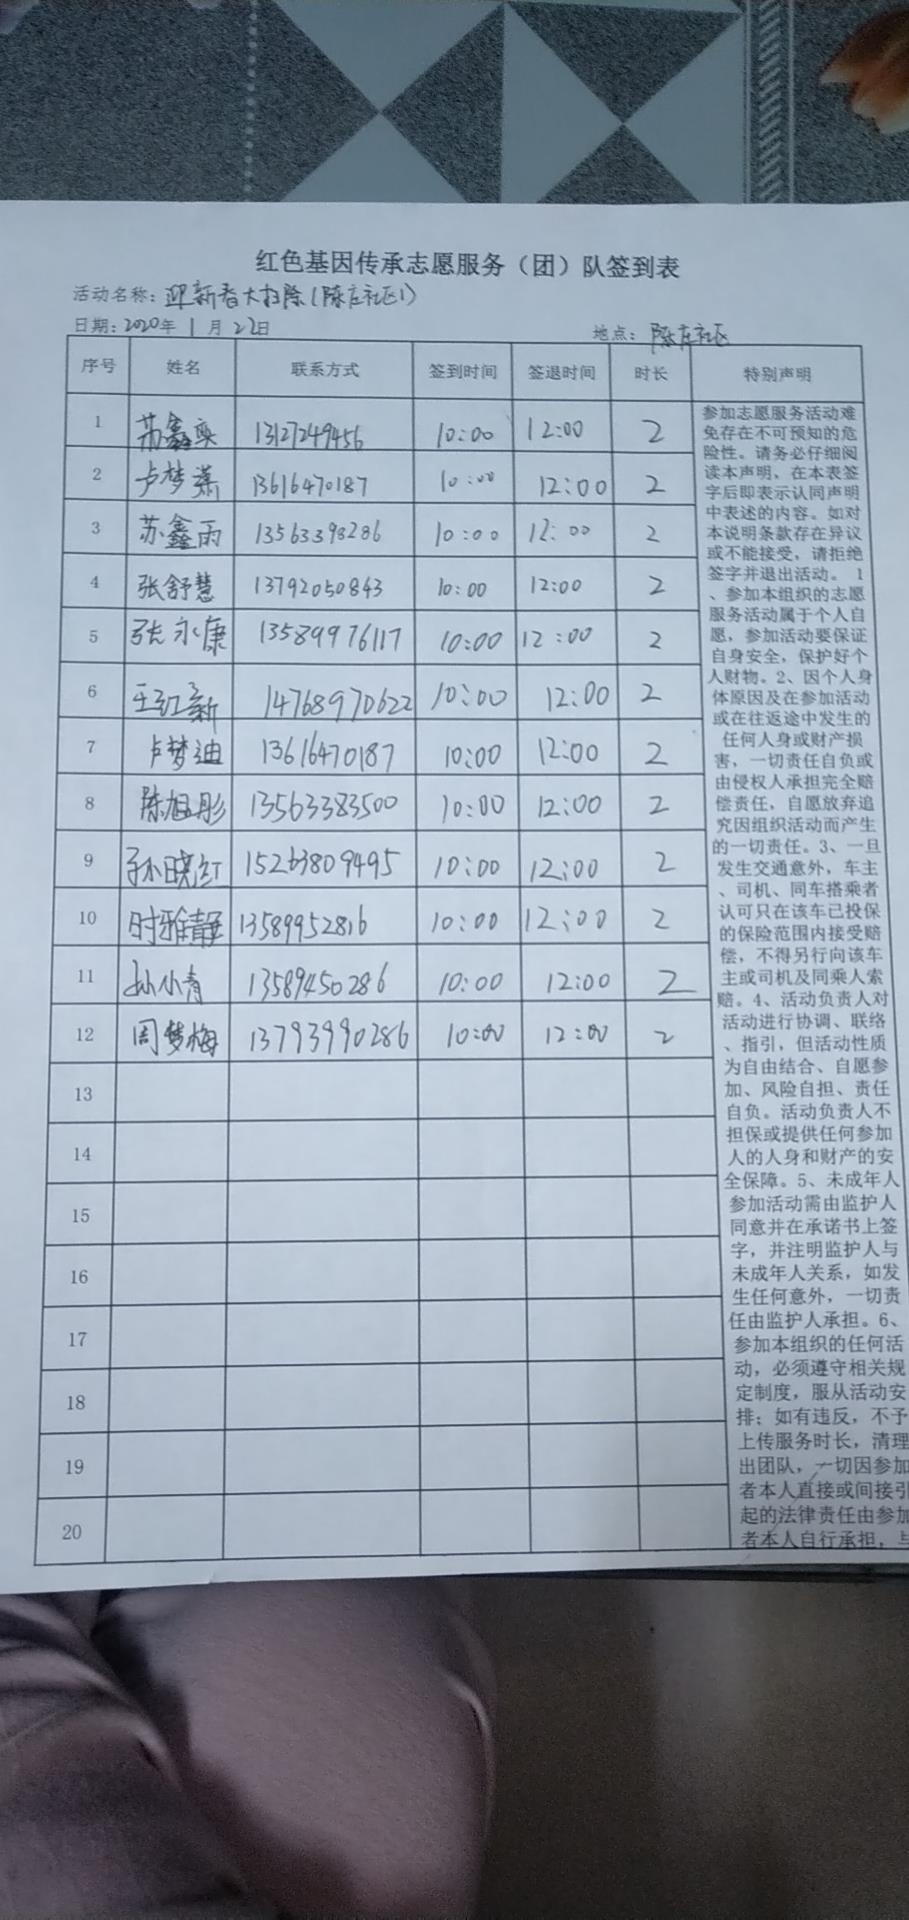 红色基因传承志愿服务（团）队签到表
活动名称：迎新春大扫除(陈庄社区1)
日期：2020年 1 月 22日 地点：陈庄社区
序号 姓名 联系方式 签到时间 签退时间 时长 特别声明
1 苏鑫奕 13127249456 10:00 12:00 2
2 卢梦潇 13616470187 10:00 12:00 2
3 苏鑫雨 13563398286 10:00 12:00 2
4 张舒慧 13792050843 10:00 12:00 2
5 张永康 13589976117 10:00 12:00 2
6 王红新 14768970622 10:00 12:00 2
7 卢梦迪 13616470187 10:00 12:00 2
8 陈旭彤 13563383500 10:00 12:00 2
9 孙晓红 15263809495 10:00 12:00 2
10 时雅静 13589952816 10:00 12:00 2
11 孙小青 13589450286 10:00 12:00 2
12 周梦梅 13793990286 10:00 12:00 2
13
14
15
16
17
18
19
20
参加志愿服务活动难
免存在不可预知的危
险性。请务必仔细阅
读本声明，在本表签
字后即表示认同声明
中表述的内容。如对
本说明条款存在异议
或不能接受，请拒绝
签字并退出活动。 1
、参加本组织的志愿
服务活动属于个人自
愿，参加活动要保证
自身安全，保护好个
人财物。2、因个人身
体原因及在参加活动
或在往返途中发生的
任何人身或财产损
害，一切责任自负或
由侵权人承担完全赔
偿责任，自愿放弃追
究因组织活动而产生
的一切责任。3、一旦
发生交通意外，车主
、司机、同车搭乘者
认可只在该车已投保
的保险范围内接受赔
偿，不得另行向该车
主或司机及同乘人索
赔。4、活动负责人对
活动进行协调、联络
、指引，但活动性质
为自由结合、自愿参
加、风险自担、责任
自负。活动负责人不
担保或提供任何参加
人的人身和财产的安
全保障。5、未成年人
参加活动需由监护人
同意并在承诺书上签
字，并注明监护人与
未成年人关系，如发
生任何意外，一切责
任由监护人承担。6、
参加本组织的任何活
动，必须遵守相关规
定制度，服从活动安
排；如有违反，不予
上传服务时长，清理
出团队，一切因参加
者本人直接或间接引
起的法律责任由参加
者本人自行承担，与